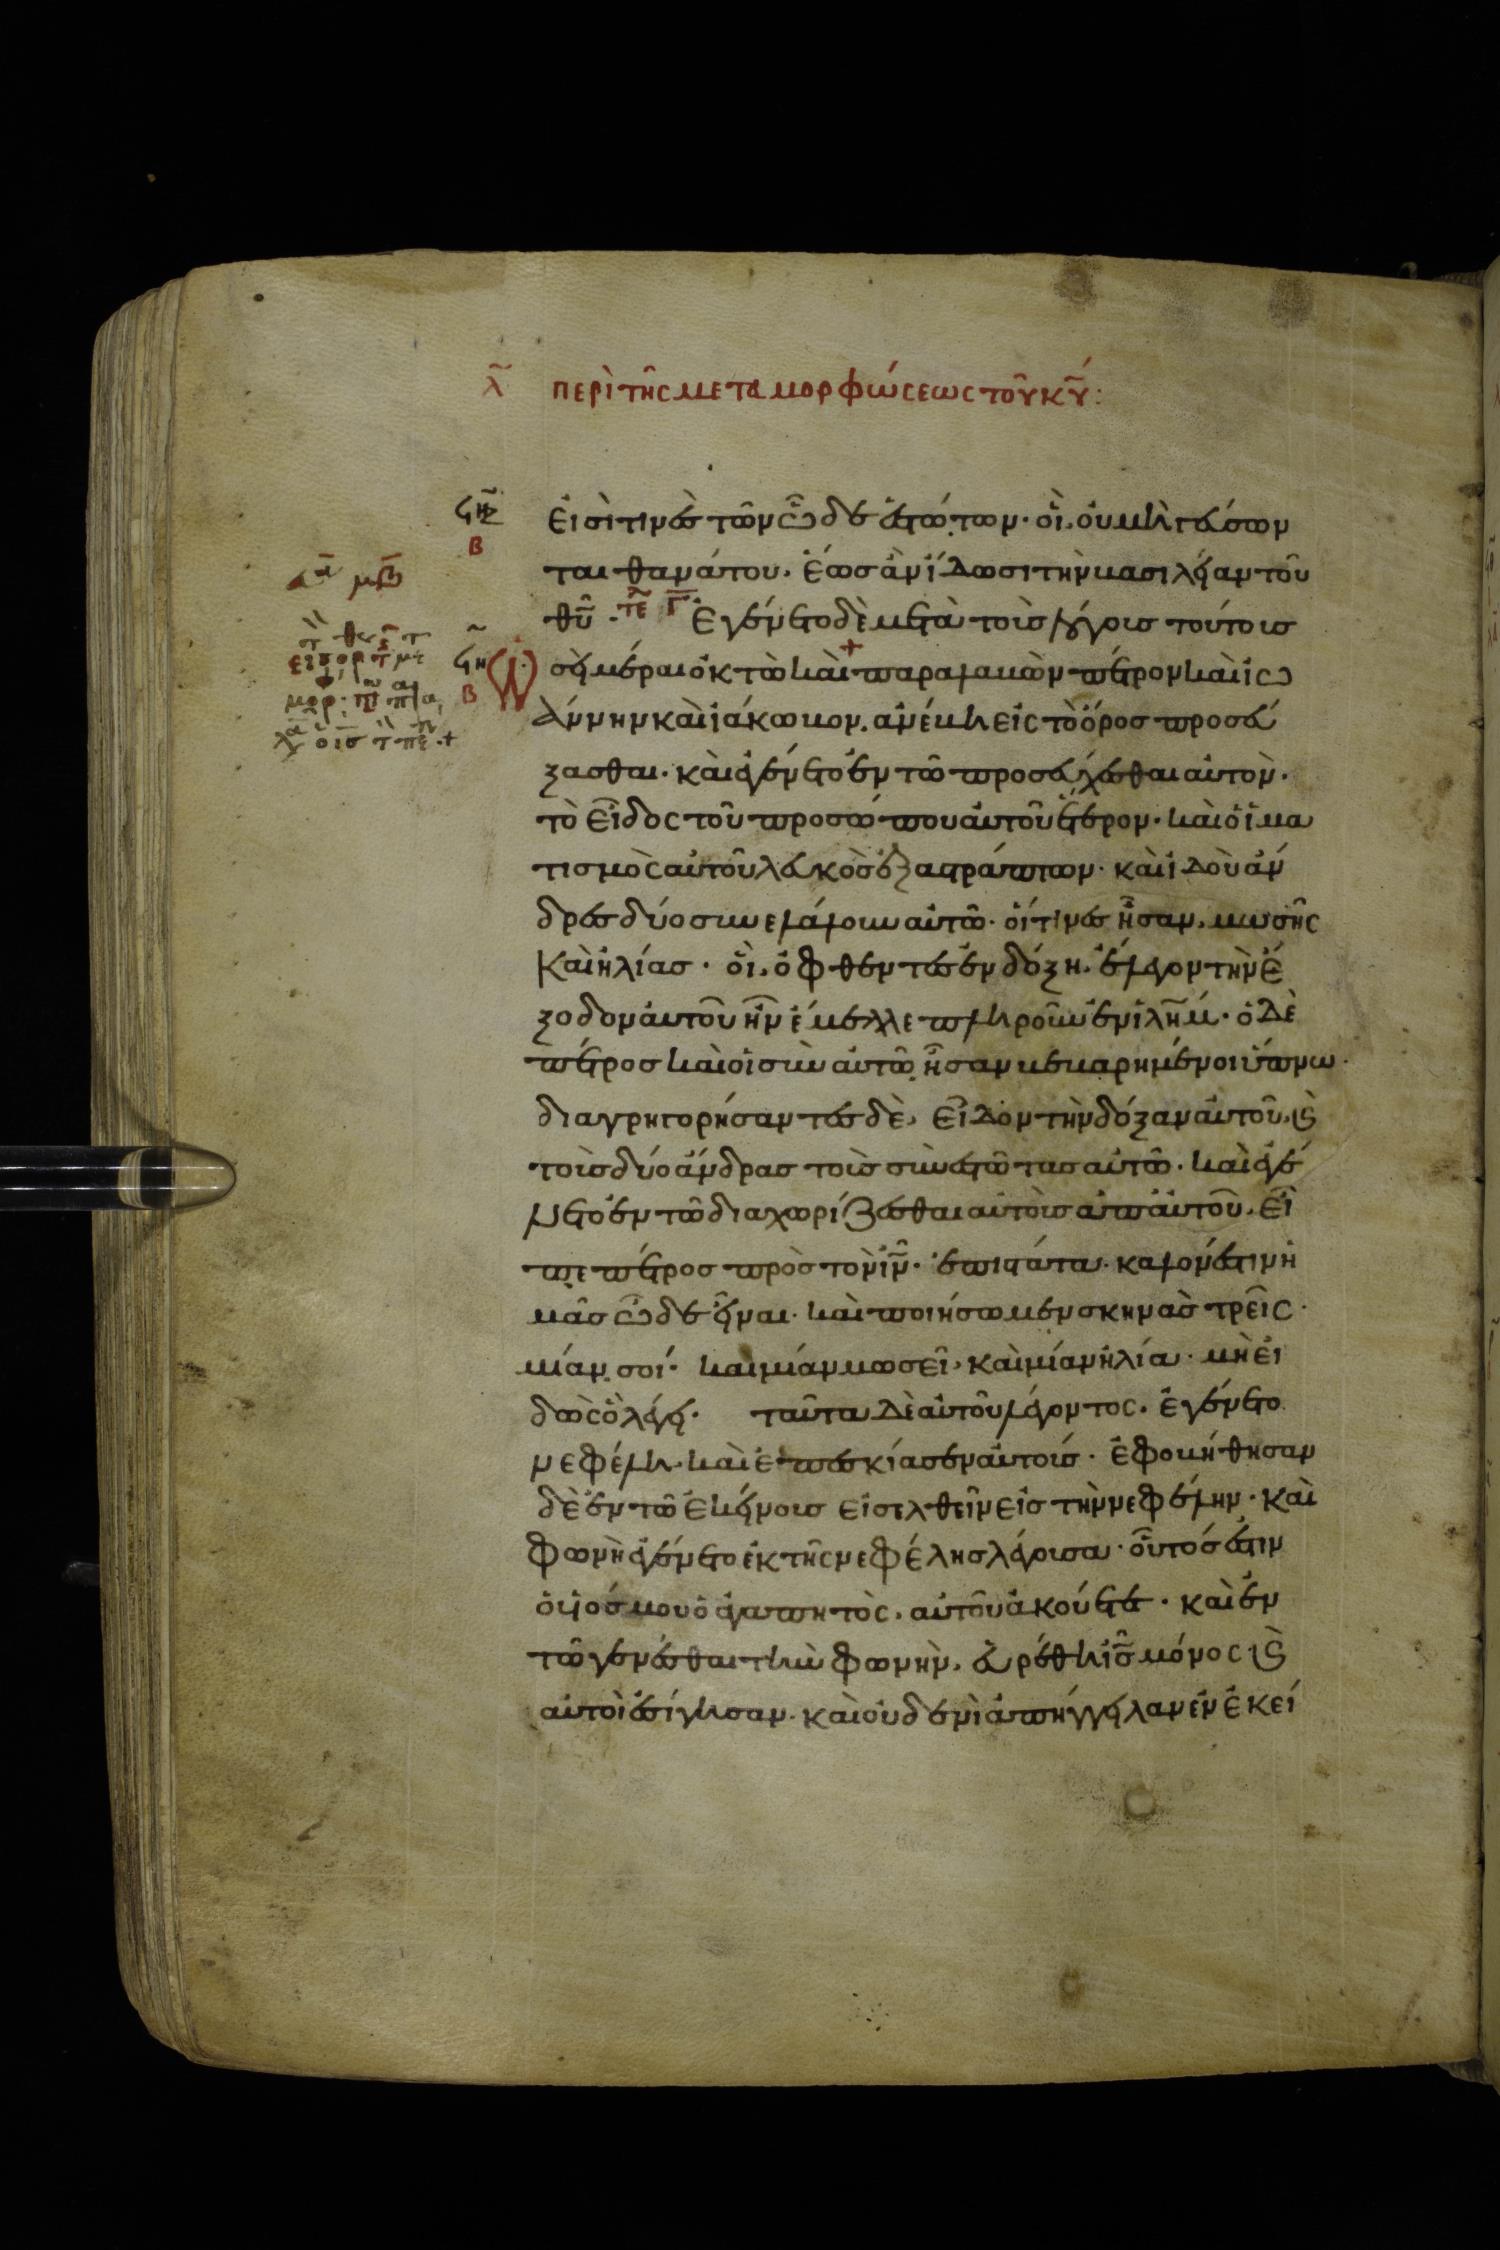 λ̄ περὶ τῆς μεταμορφώσεως τοῦ κ̅υ̅:
εἰσί τινες τῶν ὧδε ἑστώτων· οἳ οὐ μὴ γεύσων
ται θανάτου· ἕως ἂν ἴδωσι τὴν βασιλείαν τοῦ
θ̅υ̅· Ἐγένετο δὲ μετὰ τοὺς λόγους τούτους
ὡσεὶ ἡμέραι ὀκτὼ καὶ παραλαβὼν πέτρον καὶ ἰω
άννην καὶ ἰάκωβον. ἀνέβη εἰς τὸ ὄρος προσεύ
ξασθαι· καὶ ἐγένετο ἐν τῶ προσεύχεσθαι αὐτὸν·
τὸ εἶδος τοῦ προσώπου αὐτοῦ ἕτερον· καὶ ὁ ἱμα
τισμὸς αὐτοῦ λευκὸς ἐξαστράπτων· καὶ ἰδοὺ ἄν
δρες δύο συνελάλουν αὐτῶ· οἵτινες ἦσαν, μωσῆς
καὶ ἠλίας· οἳ ὀφθέντες ἐν δόξη. ἔλεγον τὴν ἔ
ξοδον αὐτοῦ ἣν ἔμελλε πληροῦν ἐν ἰ̅λ̅η̅μ̅· ὁ δὲ
πέτρος καὶ οἱ σὺν αὐτῶ ἦσαν βεβαρημένοι ὕπνω·
διαγρηγορήσαντες δὲ, εἶδον τὴν δόξαν αὐτοῦ, καὶ
τοὺς δύο ἄνδρας τοὺς συνεστῶτας αὐτῶ· καὶ ἐγέ
νετο ἐν τῶ διαχωρίζεσθαι αὐτοὺς ἀπ' αὐτοῦ, εἶ
πε πέτρος πρὸς τὸν ι̅ν̅· ἐπιστάτα· καλόν ἐστιν ἡ
μᾶς ὧδε εἶναι· καὶ ποιήσωμεν σκηνὰς τρεῖς·
μίαν σοί· καὶ μίαν μωσεῖ, καὶ μίαν ἠλία· μὴ εἰ
δὼς ὃ λέγει· ταῦτα δὲ αὐτοῦ λέγοντος. ἐγένετο
νεφέλη. καὶ ἐπεσκίασεν αὐτούς· ἐφοβήθησαν
δὲ ἐν τῶ ἐκείνους εἰσελθεῖν εἰς τὴν νεφέλην· καὶ
φωνὴ ἐγένετο ἐκ τῆς νεφέλης λέγουσα· οὗτός ἐστιν
ὁ υἱός μου ὁ ἀγαπητὸς, αὐτοῦ ἀκούετε· καὶ ἐν
τῶ γενέσθαι τὴν φωνὴν, εὑρέθη ὁ ι̅ς̅ μόνος καὶ
αὐτοὶ ἐσίγησαν. καὶ οὐδενὶ ἀπήγγειλαν ἐν ἐκεί